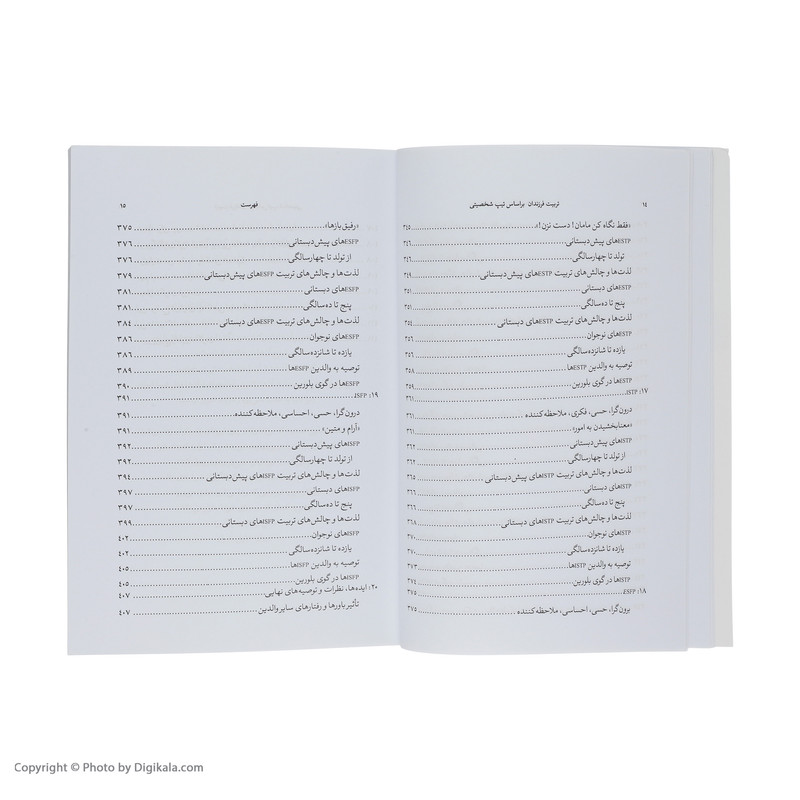 ۱۴ تربیت فرزندان براساس تیپ شخصیتی
«فقط نگاه کن مامان! دست نزن!» ۳۴۵
ESTPهای پیش‌دبستانی ۳۴۶
تولد تا چهارسالگی ۳۴۶
لذت‌ها و چالش‌های تربیت ESTPهای پیش‌دبستانی ۳۴۹
ESTPهای دبستانی ۳۵۱
پنج تا ده‌سالگی ۳۵۱
لذت‌ها و چالش‌های تربیت ESTPهای دبستانی ۳۵۴
ESTPهای نوجوان ۳۵۶
یازده تا شانزده‌سالگی ۳۵۶
توصیه به والدین ESTPها ۳۵۸
ESTPها در گوی بلورین ۳۵۹
۱۷: ISTP ۳۶۱
درون‌گرا، حسی، فکری، ملاحظه‌کننده ۳۶۱
«معنابخشیدن به امور» ۳۶۱
ISTPهای پیش‌دبستانی ۳۶۲
از تولد تا چهارسالگی ۳۶۲
لذت‌ها و چالش‌های تربیت ISTPهای پیش‌دبستانی ۳۶۵
ISTPهای دبستانی ۳۶۶
پنج تا ده‌سالگی ۳۶۶
لذت‌ها و چالش‌های تربیت ISTPهای دبستانی ۳۶۸
ISTPهای نوجوان ۳۷۰
یازده تا شانزده‌سالگی ۳۷۰
توصیه به والدین ISTPها ۳۷۳
ISTPها در گوی بلورین ۳۷۴
۱۸: ESFP ۳۷۵
برون‌گرا، حسی، احساسی، ملاحظه‌کننده ۳۷۵
فهرست ۱۵
«رفیق‌بازها» ۳۷۵
ESFPهای پیش‌دبستانی ۳۷۶
از تولد تا چهارسالگی ۳۷۶
لذت‌ها و چالش‌های تربیت ESFPهای پیش‌دبستانی ۳۷۹
ESFPهای دبستانی ۳۸۱
پنج تا ده‌سالگی ۳۸۱
لذت‌ها و چالش‌های تربیت ESFPهای دبستانی ۳۸۴
ESFPهای نوجوان ۳۸۶
یازده تا شانزده‌سالگی ۳۸۶
توصیه به والدین ESFPها ۳۸۹
ESFPها در گوی بلورین ۳۹۰
۱۹: ISFP ۳۹۱
درون‌گرا، حسی، احساسی، ملاحظه‌کننده ۳۹۱
«آرام و متین» ۳۹۱
ISFPهای پیش‌دبستانی ۳۹۲
از تولد تا چهارسالگی ۳۹۲
لذت‌ها و چالش‌های تربیت ISFPهای پیش‌دبستانی ۳۹۴
ISFPهای دبستانی ۳۹۷
پنج تا ده‌سالگی ۳۹۷
لذت‌ها و چالش‌های تربیت ISFPهای دبستانی ۳۹۹
ISFPهای نوجوان ۴۰۲
یازده تا شانزده‌سالگی ۴۰۲
توصیه به والدین ISFPها ۴۰۵
ISFPها در گوی بلورین ۴۰۵
۲۰: ایده‌ها، نظرات و توصیه‌های نهایی ۴۰۷
تأثیر باورها و رفتارهای سایر والدین ۴۰۷
Copyright © Photo by Digikala.com